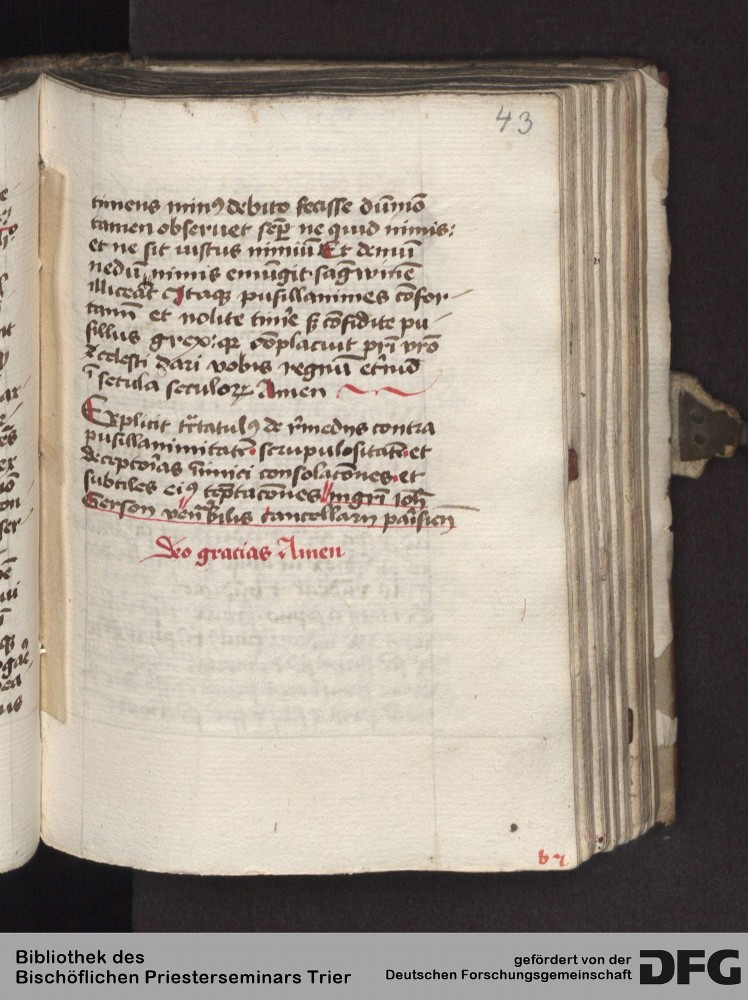 43
timens minꝰ debito fecisse dūmō
tamen obseruet semꝑ ne quid nimis:
et ne sit iustus nimiū Et demū
nimis emūgit sāgwinē
Itaqꝫ pusillanimes cōfor-
tamī et nolite timˀe sꝫ cōfidite pu-
sillus grex: qꝛ cōplacuit pr̄i vr̄o
celesti dari vobis regnū etˀnū
ī secula seculoꝝ Amen
Explicit tr̄ctatulꝰ de rˀmedijs contra
pusillanimitatē scrupulositatē et
deceptoˀias inimici consolacōnes et
subtiles eiꝰ tēptacōnes mgr̄i Joh̄
Gerson ven̄bilis cancellarij parisien̄
Deo gracias Amen
Bibliothek des
Bischöflichen Priesterseminars Trier
gefördert von der
Deutschen Forschungsgemeinschaft
DFG